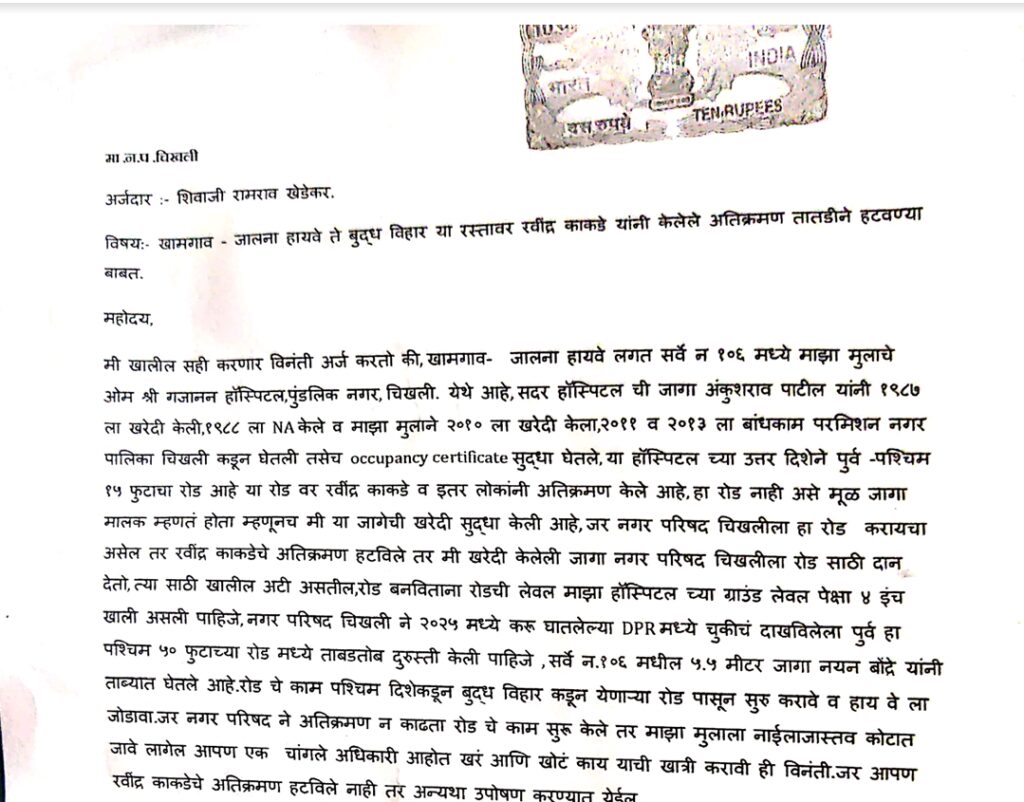 भारत
INDIA
दस रुपये
TEN RUPEES
मा .न.प .चिखली
अर्जदार :- शिवाजी रामराव खेडेकर.
विषय:- खामगाव - जालना हायवे ते बुद्ध विहार या रस्तावर रवींद्र काकडे यांनी केलेले अतिक्रमण तातडीने हटवण्या
बाबत.
महोदय,
मी खालील सही करणार विनंती अर्ज करतो की, खामगाव- जालना हायवे लगत सर्वे न १०६ मध्ये माझा मुलाचे
ओम श्री गजानन हॉस्पिटल,पुंडलिक नगर, चिखली. येथे आहे, सदर हॉस्पिटल ची जागा अंकुशराव पाटील यांनी १९८७
ला खरेदी केली,१९८८ ला NA केले व माझा मुलाने २०१० ला खरेदी केला,२०११ व २०१३ ला बांधकाम परमिशन नगर
पालिका चिखली कडून घेतली तसेच occupancy certificate सुद्धा घेतले, या हॉस्पिटल च्या उत्तर दिशेने पुर्व -पश्चिम
१५ फुटाचा रोड आहे या रोड वर रवींद्र काकडे व इतर लोकांनी अतिक्रमण केले आहे, हा रोड नाही असे मूळ जागा
मालक म्हणतं होता म्हणूनच मी या जागेची खरेदी सुद्धा केली आहे, जर नगर परिषद चिखलीला हा रोड करायचा
असेल तर रवींद्र काकडेचे अतिक्रमण हटविले तर मी खरेदी केलेली जागा नगर परिषद चिखलीला रोड साठी दान
देतो, त्या साठी खालील अटी असतील,रोड बनविताना रोडची लेवल माझा हॉस्पिटल च्या ग्राउंड लेवल पेक्षा ४ इंच
खाली असली पाहिजे, नगर परिषद चिखली ने २०२५ मध्ये करू घातलेल्या DPR मध्ये चुकीचं दाखविलेला पुर्व हा
पश्चिम ५० फुटाच्या रोड मध्ये ताबडतोब दुरुस्ती केली पाहिजे , सर्वे न.१०६ मधील ५.५ मीटर जागा नयन बोंद्रे यांनी
ताब्यात घेतले आहे.रोड चे काम पश्चिम दिशेकडून बुद्ध विहार कडून येणाऱ्या रोड पासून सुरु करावे व हाय वे ला
जोडावा.जर नगर परिषद ने अतिक्रमण न काढता रोड चे काम सुरू केले तर माझा मुलाला नाईलाजास्तव कोटात
जावे लागेल आपण एक चांगले अधिकारी आहोत खरं आणि खोटं काय याची खात्री करावी ही विनंती.जर आपण
रवींद्र काकडेचे अतिक्रमण हटविले नाही तर अन्यथा उपोषण करण्यात येईल